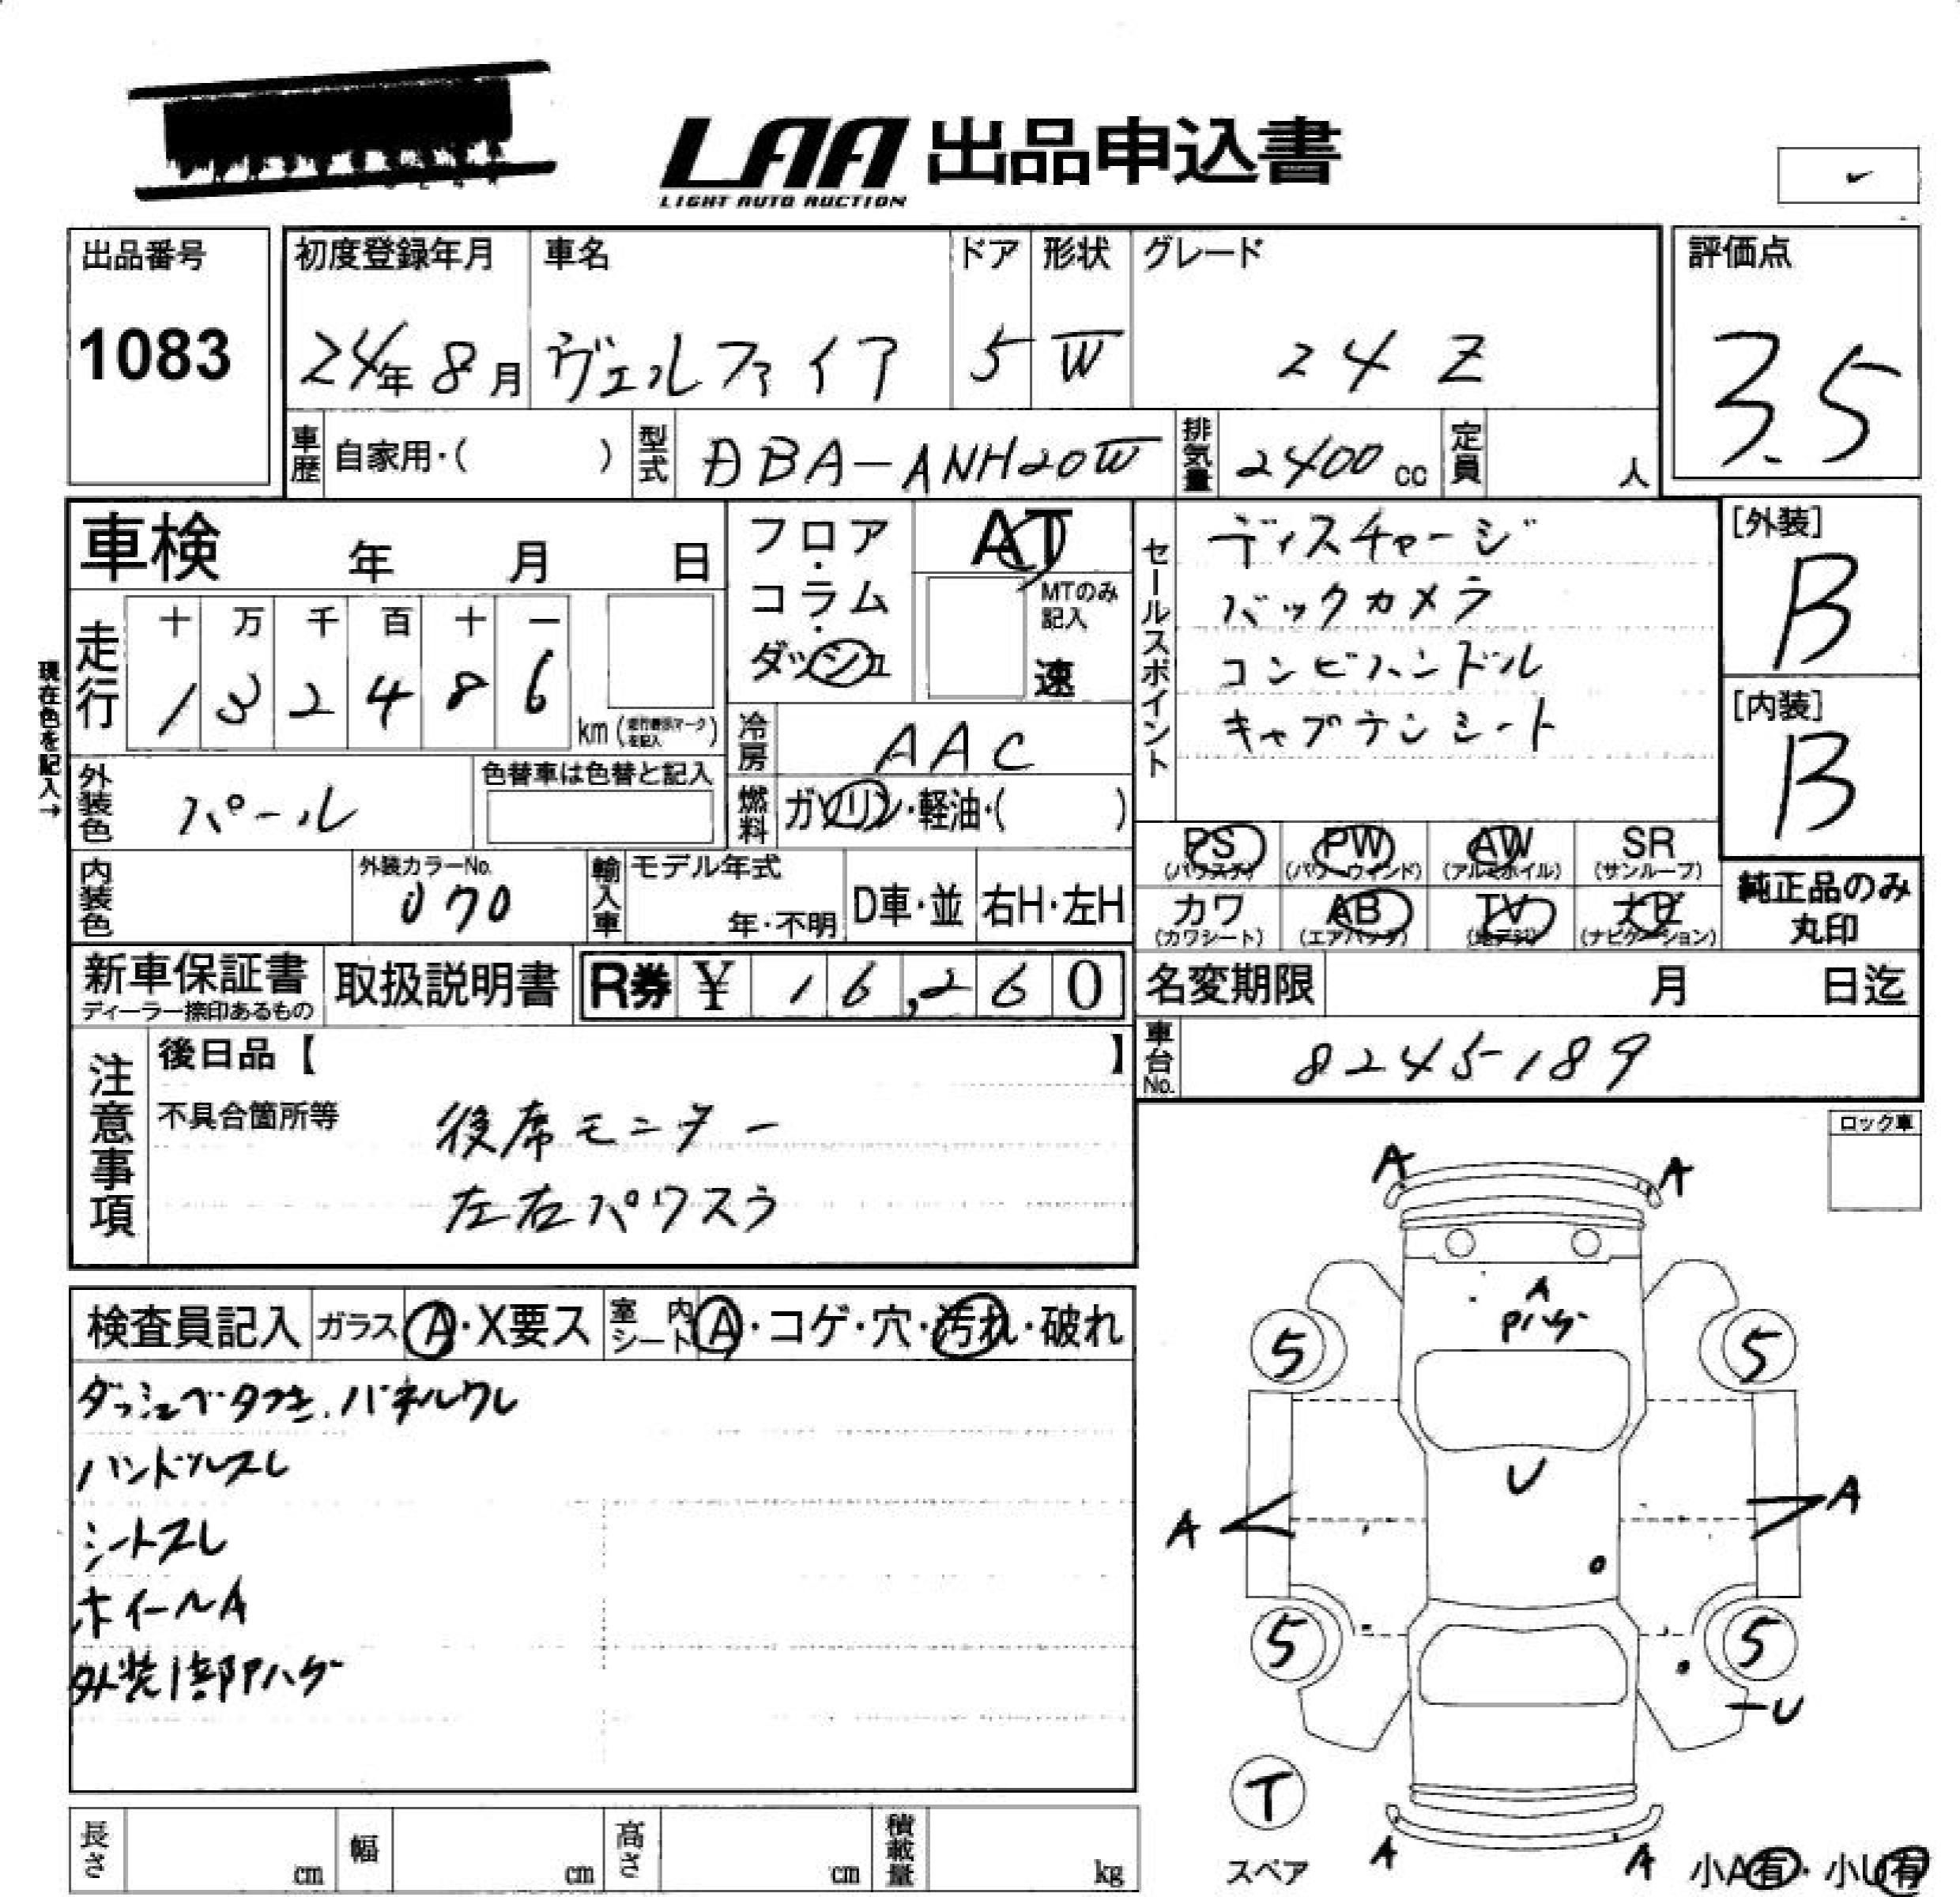 LAA 出品申込書
LIGHT AUTO AUCTION
出品番号
1083
初度登録年月 車名 ドア 形状 グレード
24年 8月 ヴェルファイア 5 W 24Z
評価点
3.5
車歴 自家用・( ) 型式 DBA-ANH20W 排気量 2400cc 定員 人
車検 年 月 日
フロア・コラム・ダッシュ
AT
MTのみ記入
速
セールスポイント
ディスチャージ
バックカメラ
コンビハンドル
キャプテンシート
[外装]
B
[内装]
B
現在色を記入→
走行 十 万 千 百 十 一
1 3 2 4 8 6 km
冷房 AAC
外装色 パール 色替車は色替と記入
燃料 ガソリン・軽油・( )
PS PW AW SR
(パワステ) (パワーウィンド) (アルミホイル) (サンルーフ)
カワ AB TV ナビ
(カワシート) (エアバッグ) (地デジ) (ナビゲーション)
純正品のみ
丸印
内装色 外装カラーNo. 070
輸入車 モデル年式 年・不明 D車・並 右H・左H
新車保証書 取扱説明書 R券 ¥ 16,260
ディーラー捺印あるもの
名変期限 月 日迄
車台No. 8245189
注意事項
後日品【 】
不具合箇所等
後席モニター
左右パワスラ
ロック車
検査員記入 ガラス A・X要ス 室内シート A・コゲ・穴・汚れ・破れ
ダッシュベタつき、パネルワレ
ハンドルスレ
シートスレ
ホイールA
外装1部Pハゲ
A A
A
Pハゲ
5 5
U
A A
5 5
U
T
スペア
A A
小A有・小U有
長さ cm 幅 cm 高さ cm 積載量 kg